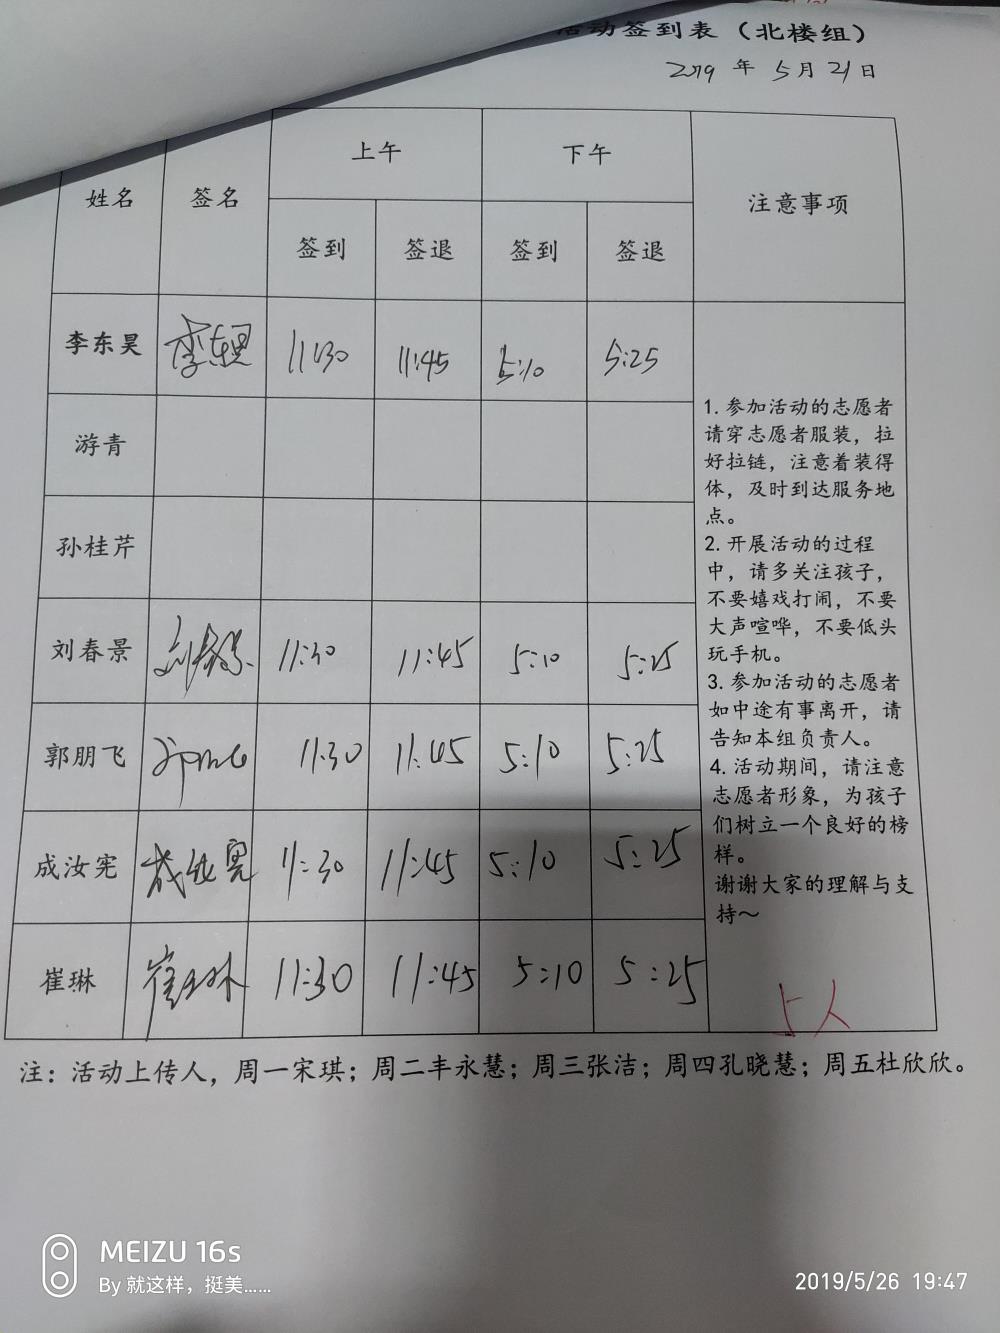 活动签到表（北楼组）
2019 年 5 月 21 日
姓名 签名 上午 下午 注意事项
签到 签退 签到 签退
李东昊 李东昊 11:30 11:45 5:10 5:25
游青
孙桂芹
刘春景 刘春景 11:30 11:45 5:10 5:25
郭朋飞 11:30 11:45 5:10 5:25
成汝宪 成汝宪 11:30 11:45 5:10 5:25
崔琳 崔琳 11:30 11:45 5:10 5:25
1. 参加活动的志愿者
请穿志愿者服装，拉
好拉链，注意着装得
体，及时到达服务地
点。
2. 开展活动的过程
中，请多关注孩子，
不要嬉戏打闹，不要
大声喧哗，不要低头
玩手机。
3. 参加活动的志愿者
如中途有事离开，请
告知本组负责人。
4. 活动期间，请注意
志愿者形象，为孩子
们树立一个良好的榜
样。
谢谢大家的理解与支
持～
5人
注：活动上传人，周一宋琪；周二丰永慧；周三张洁；周四孔晓慧；周五杜欣欣。
MEIZU 16s
By 就这样，挺美......
2019/5/26 19:47